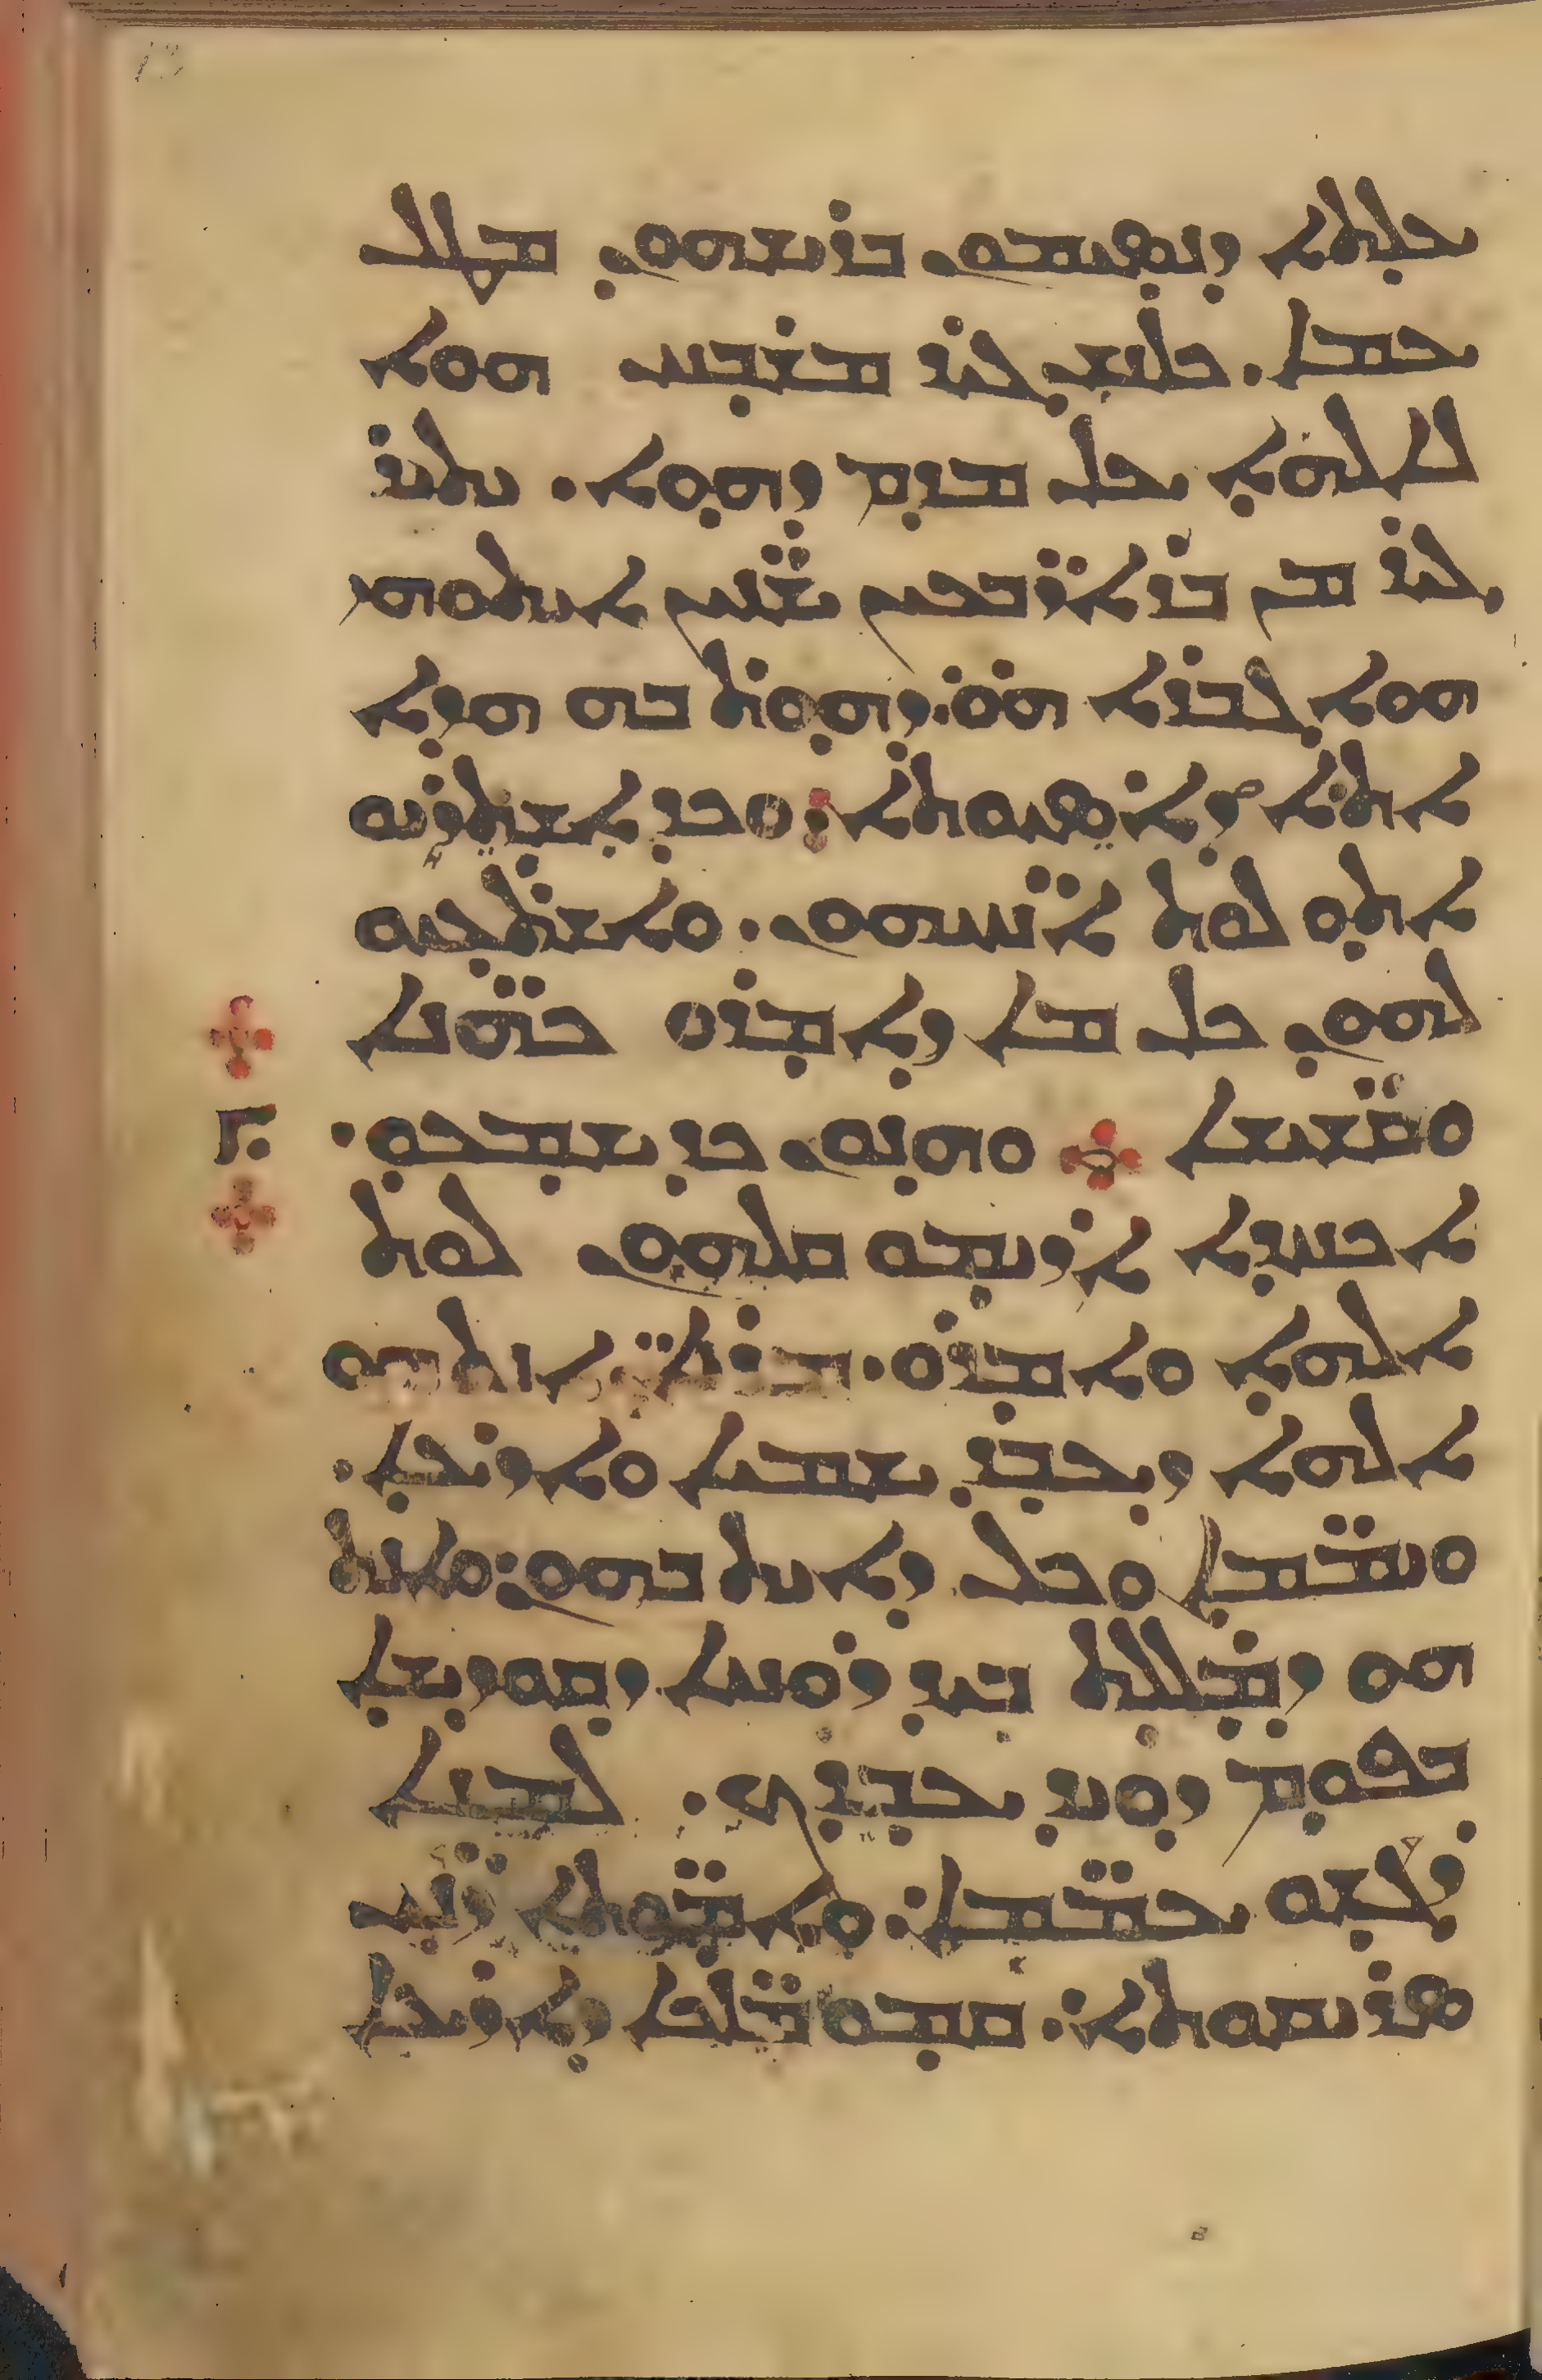 ܥܠܬܐ ܕܢܣܝܡܘܢ ܒܪܝܫܗܘܢ ܡܛܠ
ܥܡܐ. ܟܠܢܫ ܓܝܪ ܡܫܒܚ ܗܘܐ
ܠܐܠܗܐ ܥܠ ܡܕܡ ܕܗܘܐ. ܝܬܝܪ
ܓܝܪ ܡܢ ܒܪ ܐܪ̈ܒܥܝܢ ܫܢ̈ܝܢ ܐܝܬܘܗܝ
ܗܘܐ ܓܒܪܐ ܗܘ. ܕܗܘܬ ܒܗ ܗܕܐ
ܐܬܐ ܕܐܣܝܘܬܐ: ܘܟܕ ܐܫܬܪܝܘ
ܐܬܘ ܠܘܬ ܐܚ̈ܝܗܘܢ. ܘܐܫܬܥܝܘ
ܠܗܘܢ ܟܠ ܡܐ ܕܐܡܪܘ ܟܗ̈ܢܐ
ܘܩܫ̈ܝܫܐ ܀ ܘܗܢܘܢ ܟܕ ܫܡܥܘ.
ܐܟܚܕܐ ܐܪܝܡܘ ܩܠܗܘܢ ܠܘܬ
ܐܠܗܐ ܘܐܡܪܘ. ܡܪܝܐ ܐܢܬ ܗܘ
ܐܠܗܐ ܕܥܒܕ ܫܡܝܐ ܘܐܪܥܐ.
ܘܝܡ̈ܡܐ ܘܟܠ ܕܐܝܬ ܒܗܘܢ: ܘܐܢܬ
ܗܘ ܕܡܠܠܬ ܒܝܕ ܪܘܚܐ ܕܩܘܕܫܐ
ܒܦܘܡ ܕܘܝܕ ܥܒܕܟ. ܠܡܢܐ
ܪܓܫܘ ܥܡ̈ܡܐ: ܘܐܡ̈ܘܬܐ ܪ̈ܢܝ
ܣܪܝܩܘܬܐ: ܩܡܘ ܡܠ̈ܟܐ ܕܐܪܥܐ